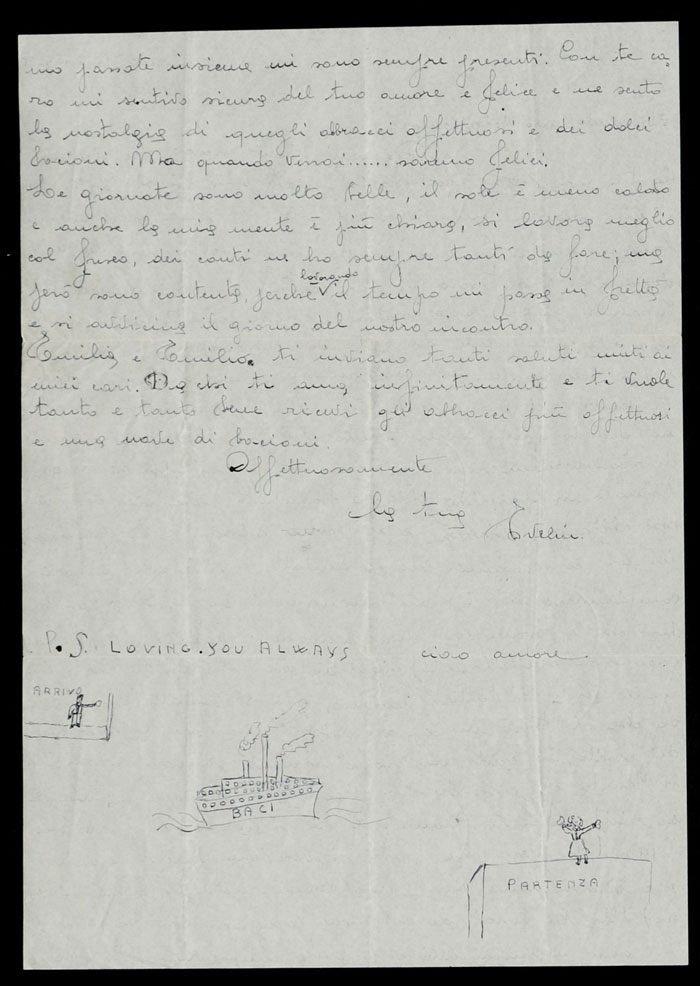 mo passate insieme mi sono sempre presenti. Con te ca-
ro mi sentivo sicura del tuo amore e felice e ne sento
la nostalgia di quegli abbracci affettuosi e dei dolci
bacioni. Ma quando verrai...... saremo felici.
Le giornate sono molto belle, il sole è meno caldo
e anche la mia mente è più chiara, si lavora meglio
col fresco, dei conti ne ho sempre tanti da fare; ma
però sono contenta, perchè lavorando il tempo mi passa in fretta
e si avvicina il giorno del nostro incontro.
Emilia e Emilio ti inviano tanti saluti uniti ai
miei cari. Da chi ti ama infinitamente e ti vuole
tanto e tanto bene ricevi gli abbracci più affettuosi
e una nave di bacioni.
Affettuosamente
la tua
P.S. LOVING.YOU ALWAYS ciao amore
ARRIVO
BACI
PARTENZA